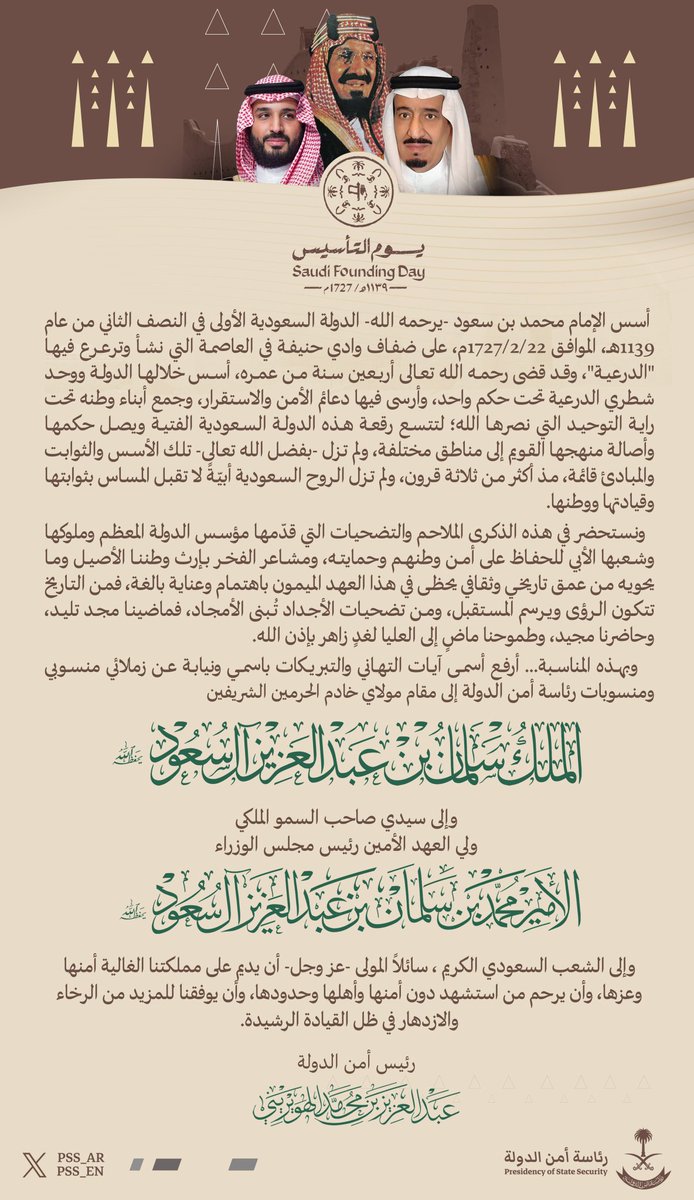 يوم التأسيس
Saudi Founding Day
١١٣٩هـ / ١٧٢٧م
أسس الإمام محمد بن سعود -يرحمه الله- الدولة السعودية الأولى في النصف الثاني من عام
1139هـ، الموافق 1727/2/22م، على ضفاف وادي حنيفة في العاصمة التي نشأ وترعرع فيها
"الدرعية"، وقد قضى رحمه الله تعالى أربعين سنة من عمره، أسس خلالها الدولة ووحد
شطري الدرعية تحت حكم واحد، وأرسى فيها دعائم الأمن والاستقرار، وجمع أبناء وطنه تحت
راية التوحيد التي نصرها الله؛ لتتسع رقعة هذه الدولة السعودية الفتية ويصل حكمها
وأصالة منهجها القويم إلى مناطق مختلفة، ولم تزل -بفضل الله تعالى- تلك الأسس والثوابت
والمبادئ قائمة، مذ أكثر من ثلاثة قرون، ولم تزل الروح السعودية أبيّةً لا تقبل المساس بثوابتها
وقيادتها ووطنها.
ونستحضر في هذه الذكرى الملاحم والتضحيات التي قدّمها مؤسس الدولة المعظم وملوكها
وشعبها الأبي للحفاظ على أمن وطنهم وحمايته، ومشاعر الفخر بإرث وطننا الأصيل وما
يحويه من عمق تاريخي وثقافي يحظى في هذا العهد الميمون باهتمام وعناية بالغة، فمن التاريخ
تتكون الرؤى ويرسم المستقبل، ومن تضحيات الأجداد تُبنى الأمجاد، فماضينا مجد تليد،
وحاضرنا مجيد، وطموحنا ماضٍ إلى العليا لغدٍ زاهر بإذن الله.
وبهذه المناسبة... أرفع أسمى آيات التهاني والتبريكات باسمي ونيابة عن زملائي منسوبي
ومنسوبات رئاسة أمن الدولة إلى مقام مولاي خادم الحرمين الشريفين
الملك سلمان بن عبدالعزيز آل سعود يحفظه الله
وإلى سيدي صاحب السمو الملكي
ولي العهد الأمين رئيس مجلس الوزراء
الأمير محمد بن سلمان بن عبدالعزيز آل سعود يحفظه الله
وإلى الشعب السعودي الكريم ، سائلاً المولى -عز وجل- أن يديم على مملكتنا الغالية أمنها
وعزها، وأن يرحم من استشهد دون أمنها وأهلها وحدودها، وأن يوفقنا للمزيد من الرخاء
والازدهار في ظل القيادة الرشيدة.
رئيس أمن الدولة
عبدالعزيز بن محمد الهويريني
PSS_AR
PSS_EN
رئاسة أمن الدولة
Presidency of State Security